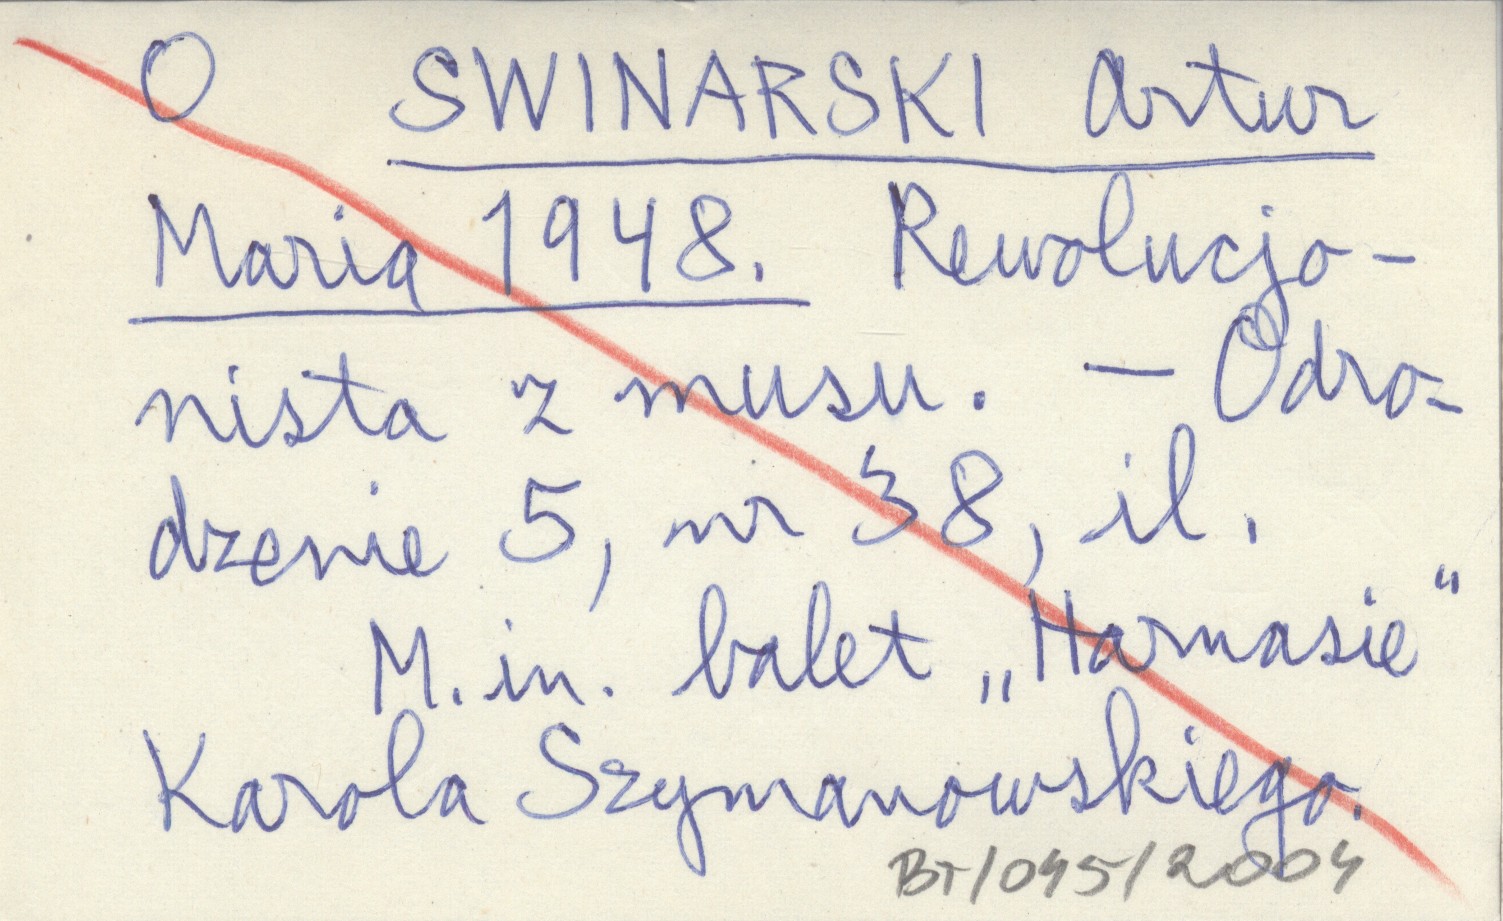 O SWINARSKI Artur
Maria 1948. Rewolucjo-
nista z musu. – Odro-
dzenie 5, nr 38, il.
M.in. balet „Harnasie“
Karola Szymanowskiego.
BT/045/2004